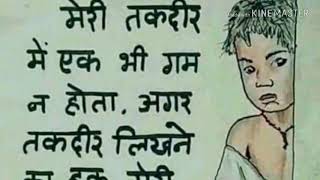 KINEMASTER
मेरी तकदीर
में एक भी गम
न होता, अगर
तकदीर लिखने
का हक मेरी